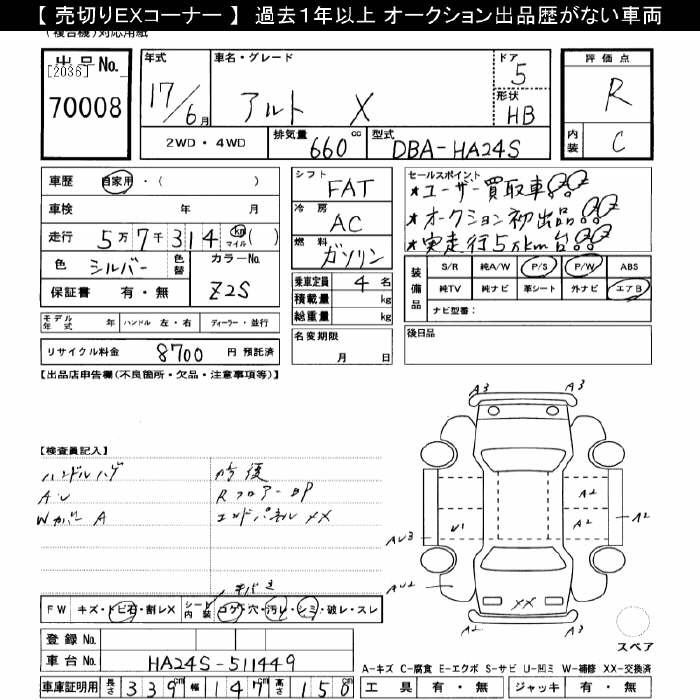 【 売切りEXコーナー 】 過去1年以上 オークション出品歴がない車両
(複合機)対応用紙
出品No.
[2036]
70008
年式
17/6月
車名・グレード
アルト X
ドア
5
形状
HB
評価点
R
内装
C
2WD・4WD
排気量
660cc
型式
DBA-HA24S
車歴 自家用・( )
車検 年 月
走行 5万7千314 km マイル ( )
色 シルバー 色替
カラーNo.
Z2S
保証書 有・無
シフト
FAT
冷房
AC
燃料
ガソリン
乗車定員 4名
積載量 kg
総重量 kg
セールスポイント
★ユーザー買取車
★オークション初出品
★実走行5万km台
装備品
S/R 純A/W P/S P/W ABS
純TV 純ナビ 革シート 外ナビ エアB
ナビ型番:
モデル年式 年 ハンドル 左・右 ディーラー・並行
名変期限
月 日
後日品
リサイクル料金 8700 円 預託済
【出品店申告欄(不良箇所・欠品・注意事項等)】
【検査員記入】
ハンドルハゲ
AU
Wカバー A
修復
Rフロアー BP
エンドパネル XX
A3
A3
A2
A2
A2
U1
AU3
AU2
XX
A3
A3
スペア
FW キズ・トビ石・割レX
シート内装 コゲ・穴・汚レ・シミ・破レ・スレ
登録No.
車台No. HA24S-511449
車庫証明用 長さ 339cm 幅 147cm 高さ 150cm
A-キズ C-腐食 E-エクボ S-サビ U-凹ミ W-補修 XX-交換済
工具 有・無 ジャッキ 有・無